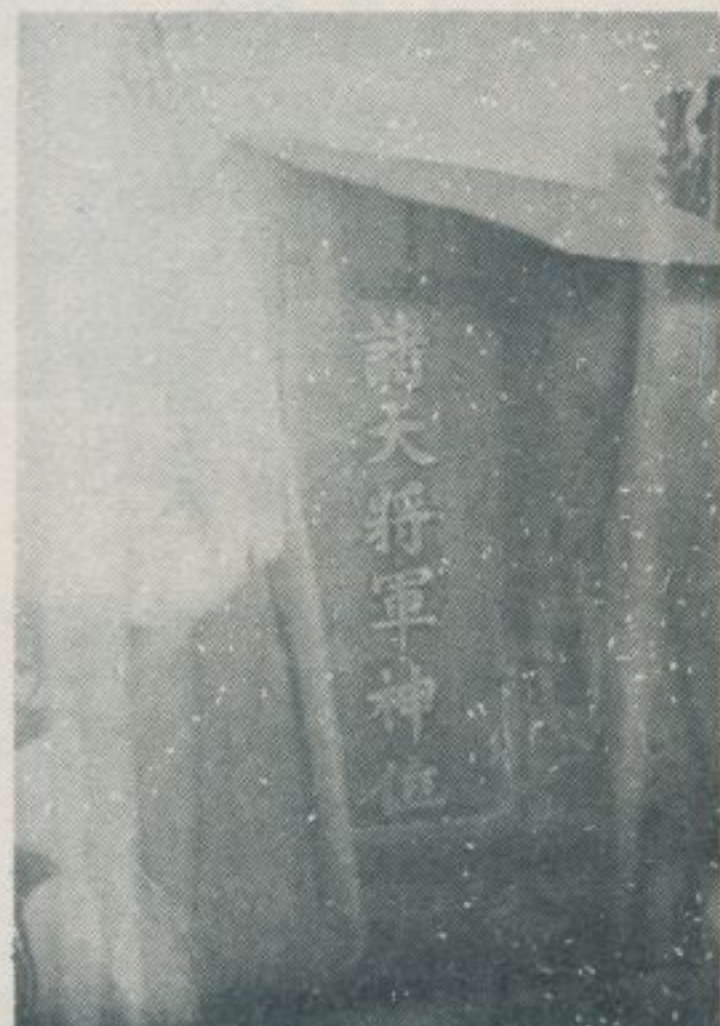 諸天將軍神位